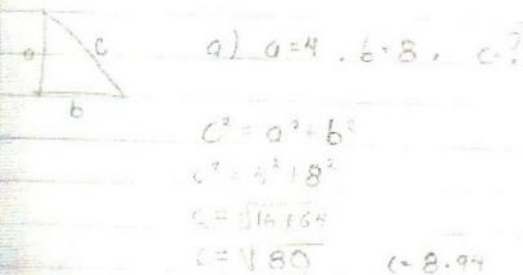 a
c
b
a) a=4, b=8, c=?
c² = a² + b²
c² = 4² + 8²
c = √16+64
c = √80 c= 8.94